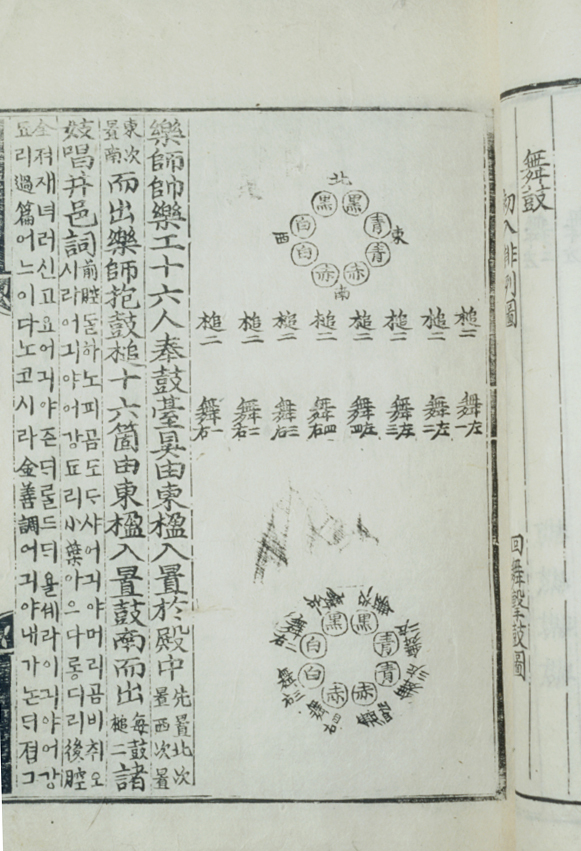 舞鼓
初入排列圖
回舞擊鼓圖
北
黑 黑
青 青
東
西
白 白
赤 赤
南
槌二 槌二 槌二 槌二 槌二 槌二 槌二 槌二
舞左一 舞左二 舞左三 舞左四 舞右四 舞右三 舞右二 舞右一
黑 黑
青 青
白 白
赤 赤
樂師帥樂工十六人奉鼓臺具由東楹入置於殿中先置北次置西次置
東次置南而出樂師抱鼓槌十六箇由東楹入置鼓南而出每鼓槌二諸
妓唱井邑詞前腔ᄃᆞᆯ하노피곰도ᄃᆞ샤어긔야머리곰비취오
시라어긔야어강됴리小葉아으다롱디리後腔
全져재녀러신고요어긔야즌ᄃᆡᄅᆞᆯ드ᄃᆡ욜셰라어긔야어강
됴리過篇어느이다노코시라金善調어긔야내가논ᄃᆡ졈그